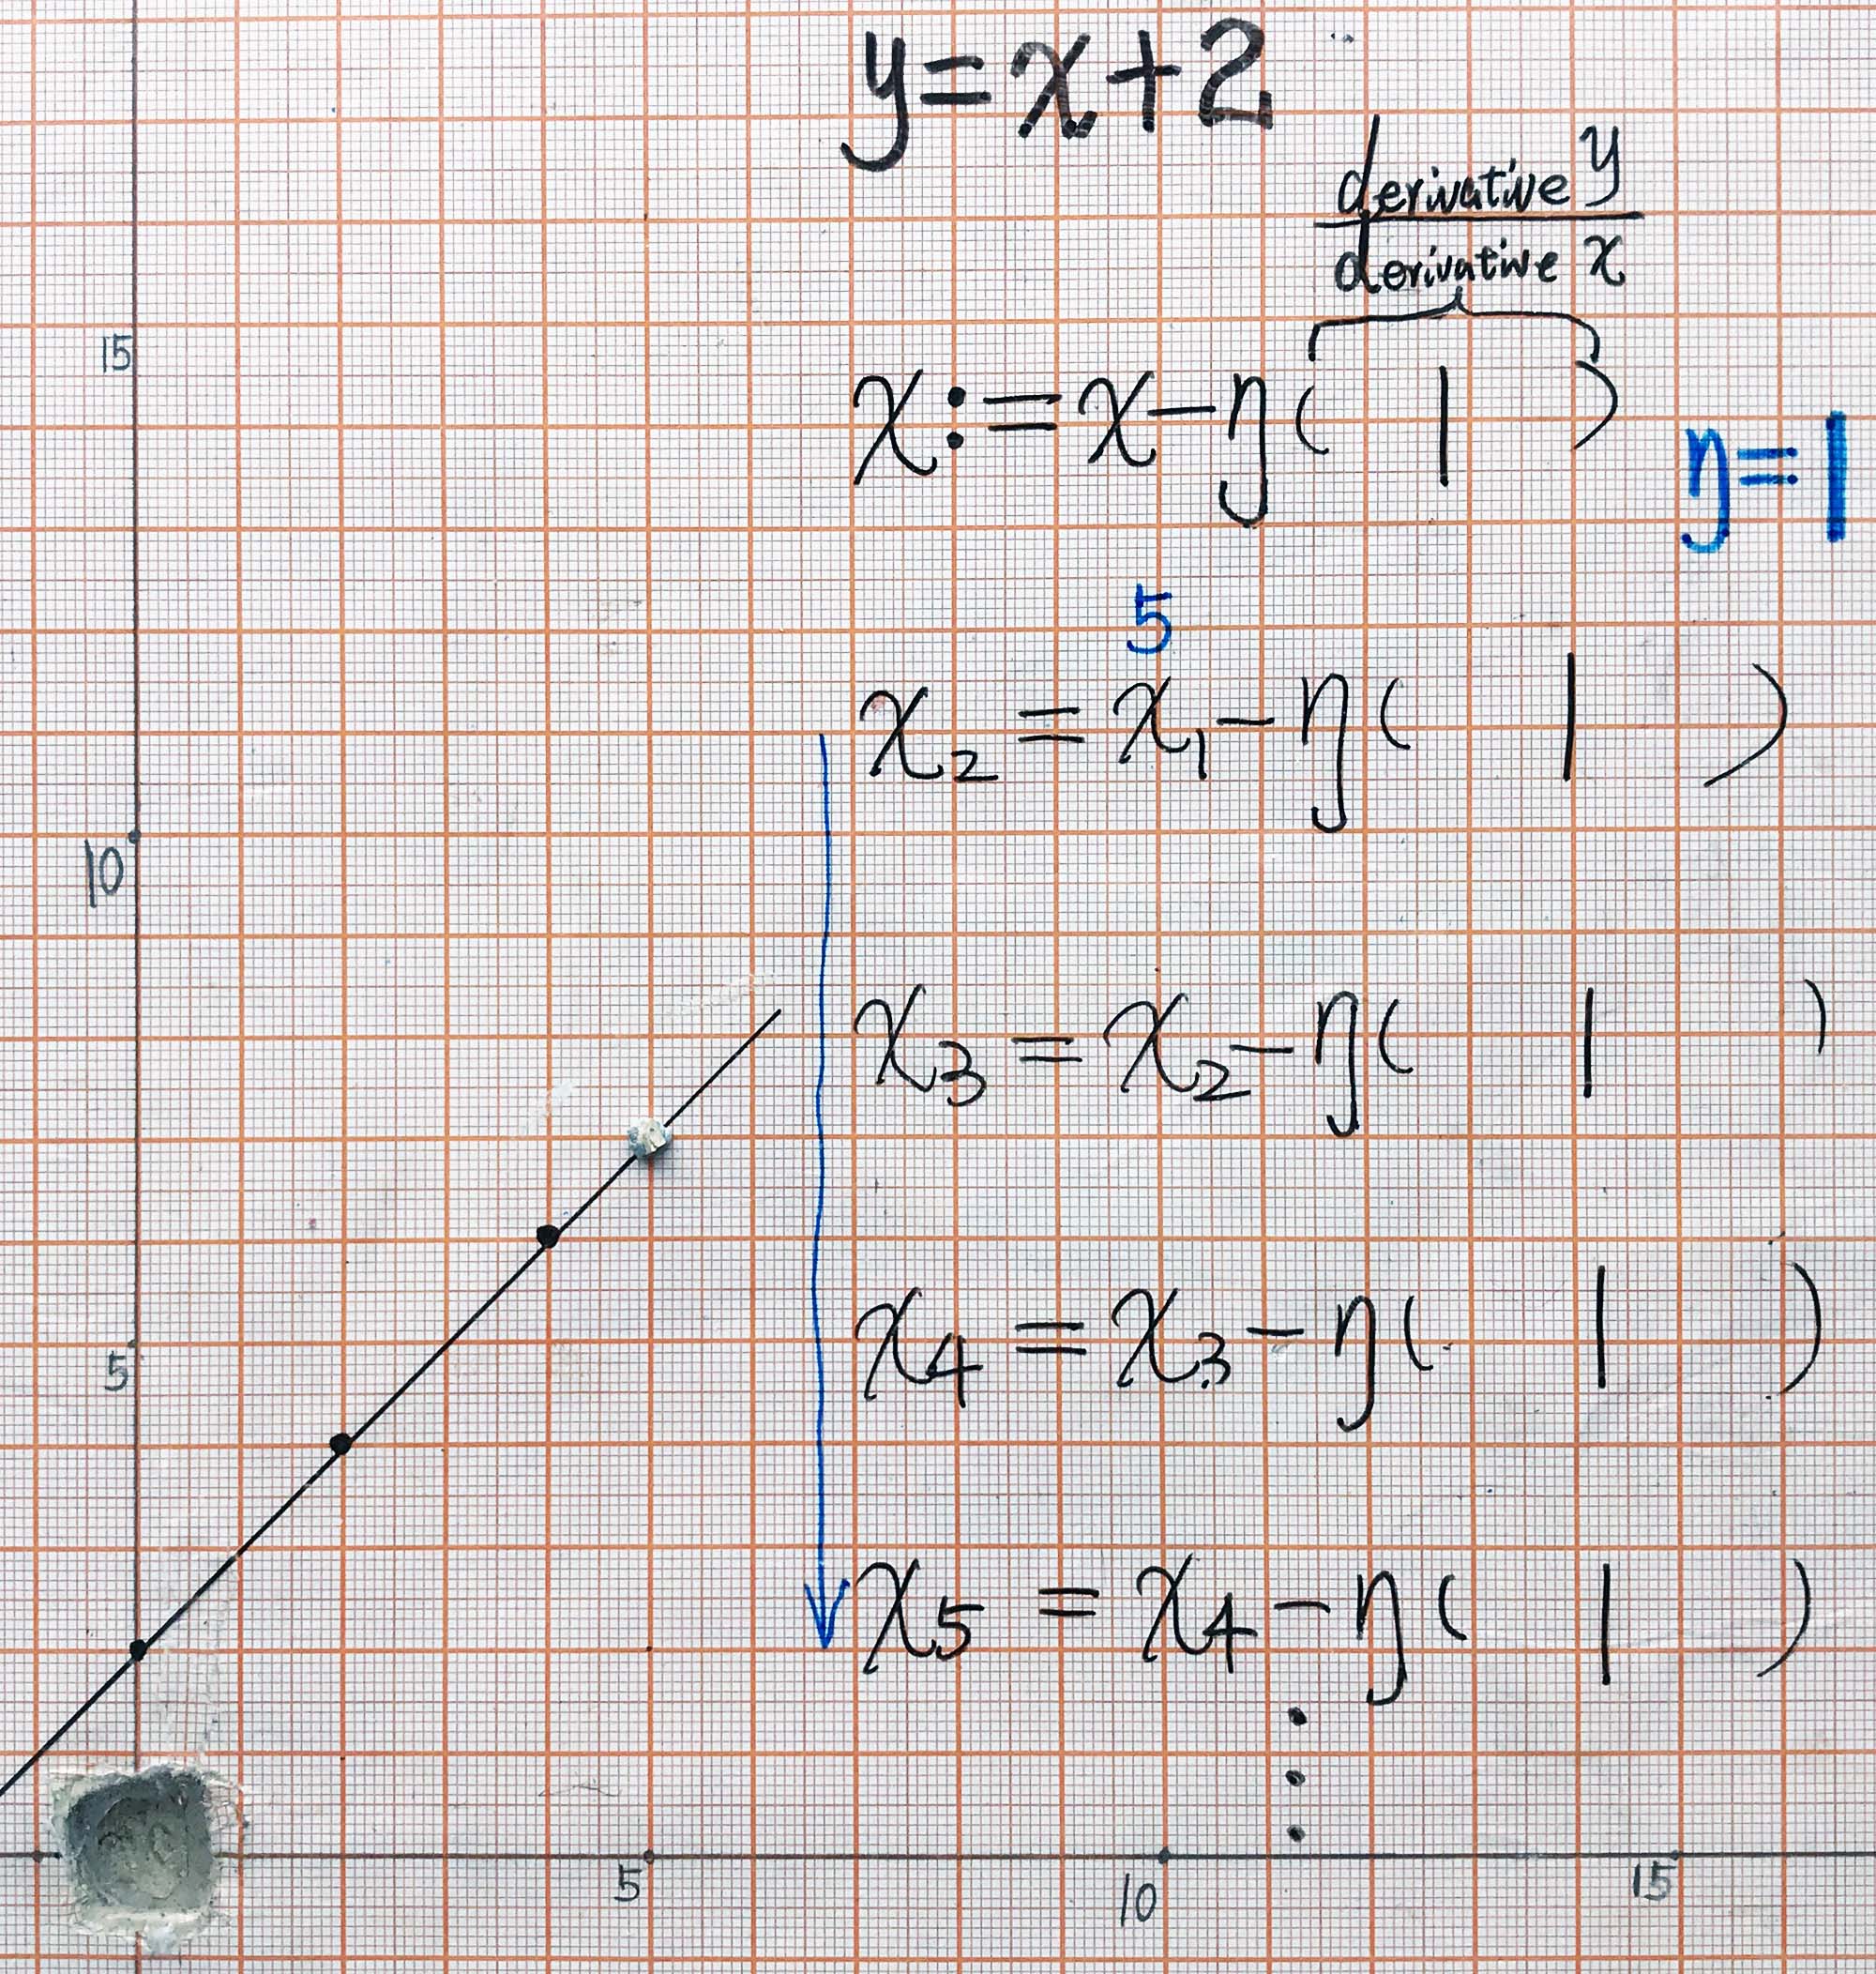 y=x+2
derivative y
derivative x
15
x:=x-η( 1 )
η=1
5
x₂ = x₁-η( 1 )
10
x₃ = x₂-η( 1 )
5
x₄ = x₃-η( 1 )
x₅ = x₄-η( 1 )
⋮
5 10 15